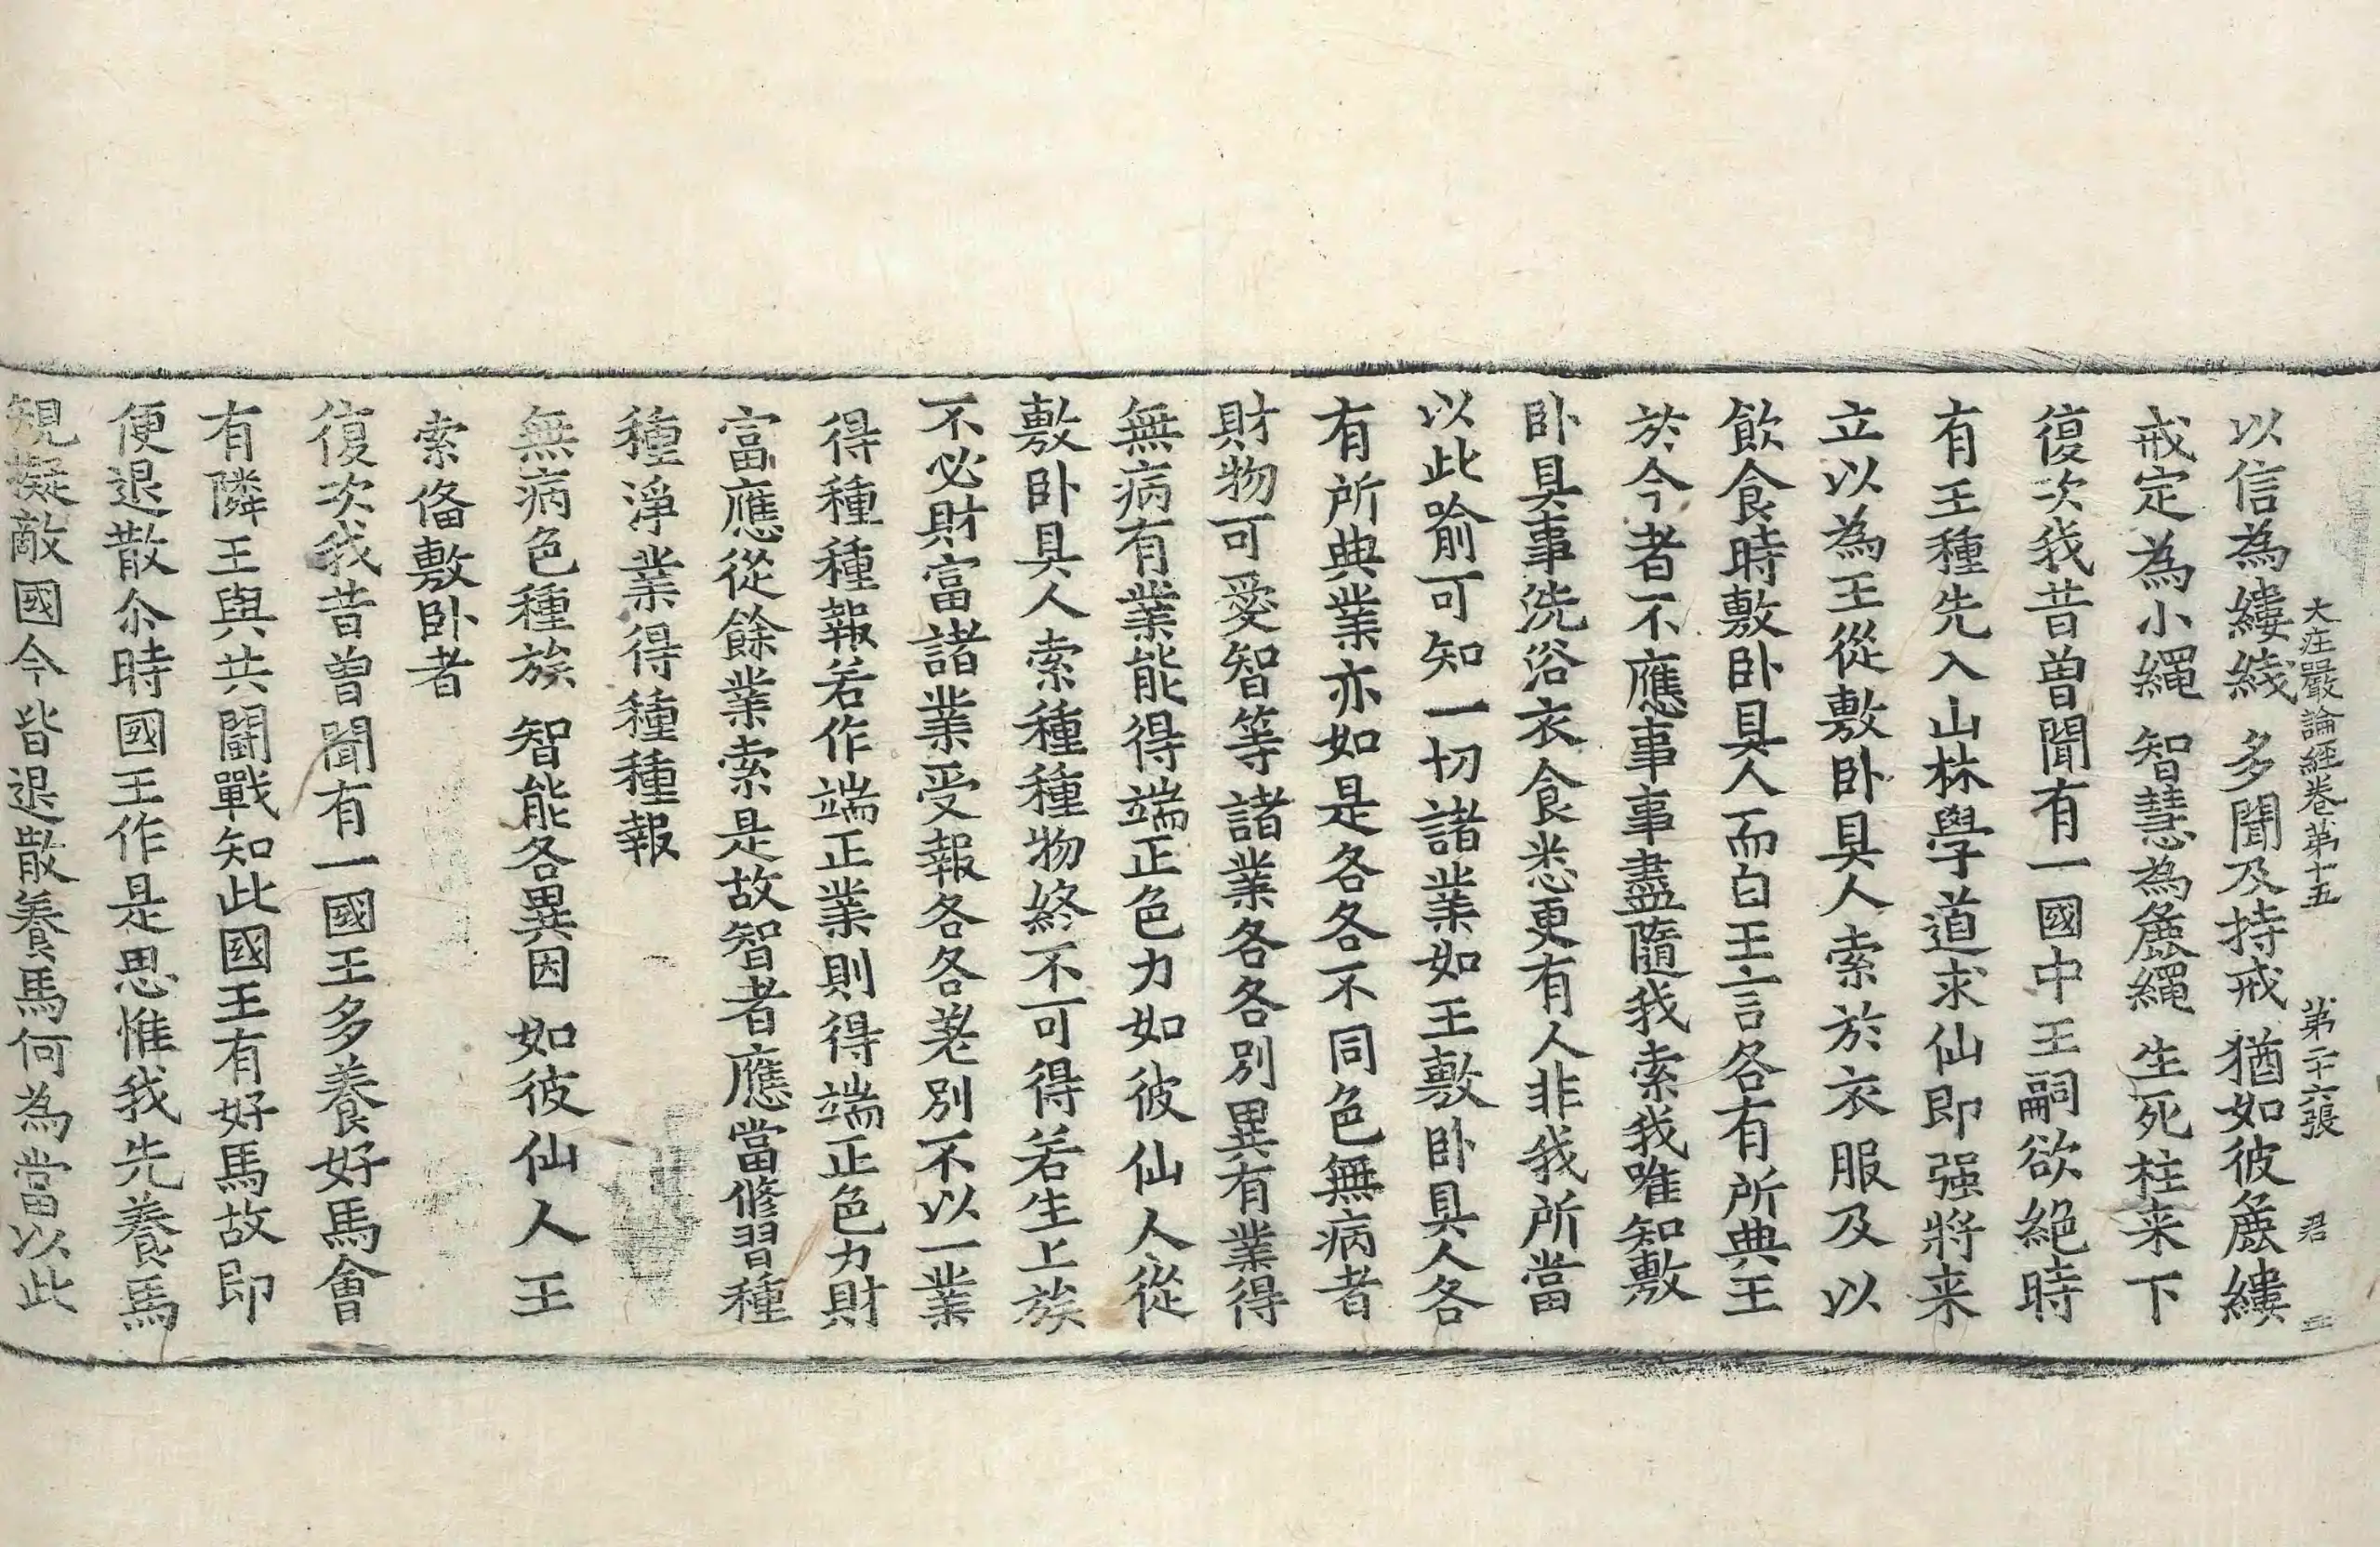 大庄嚴論經卷第十五　第二十六張　君
以信為縷綫　多聞及持戒　猶如彼麁縷
戒定為小繩　智慧為麁繩　生死柱来下
復次我昔曾聞有一國中王嗣欲絶時
有王種先入山林學道求仙即强將来
立以為王從敷卧具人索於衣服及以
飲食時敷卧具人而白王言各有所典王
於今者不應事事盡隨我索我唯知敷
卧具事洗浴衣食悉更有人非我所當
以此喻可知一切諸業如王敷卧具人各
有所典業亦如是各各不同色無病者
財物可愛智等諸業各各別異有業得
無病有業能得端正色力如彼仙人從
敷卧具人索種種物終不可得若生上族
不必財富諸業受報各各差別不以一業
得種種報若作端正業則得端正色力財
富應從餘業索是故智者應當修習種
種淨業得種種報
無病色種族　智能各異因　如彼仙人王
索俻敷卧者
復次我昔曾聞有一國王多養好馬會
有隣王與共鬪戰知此國王有好馬故即
便退散尒時國王作是思惟我先養馬
規擬敵國今皆退散養馬何為當以此